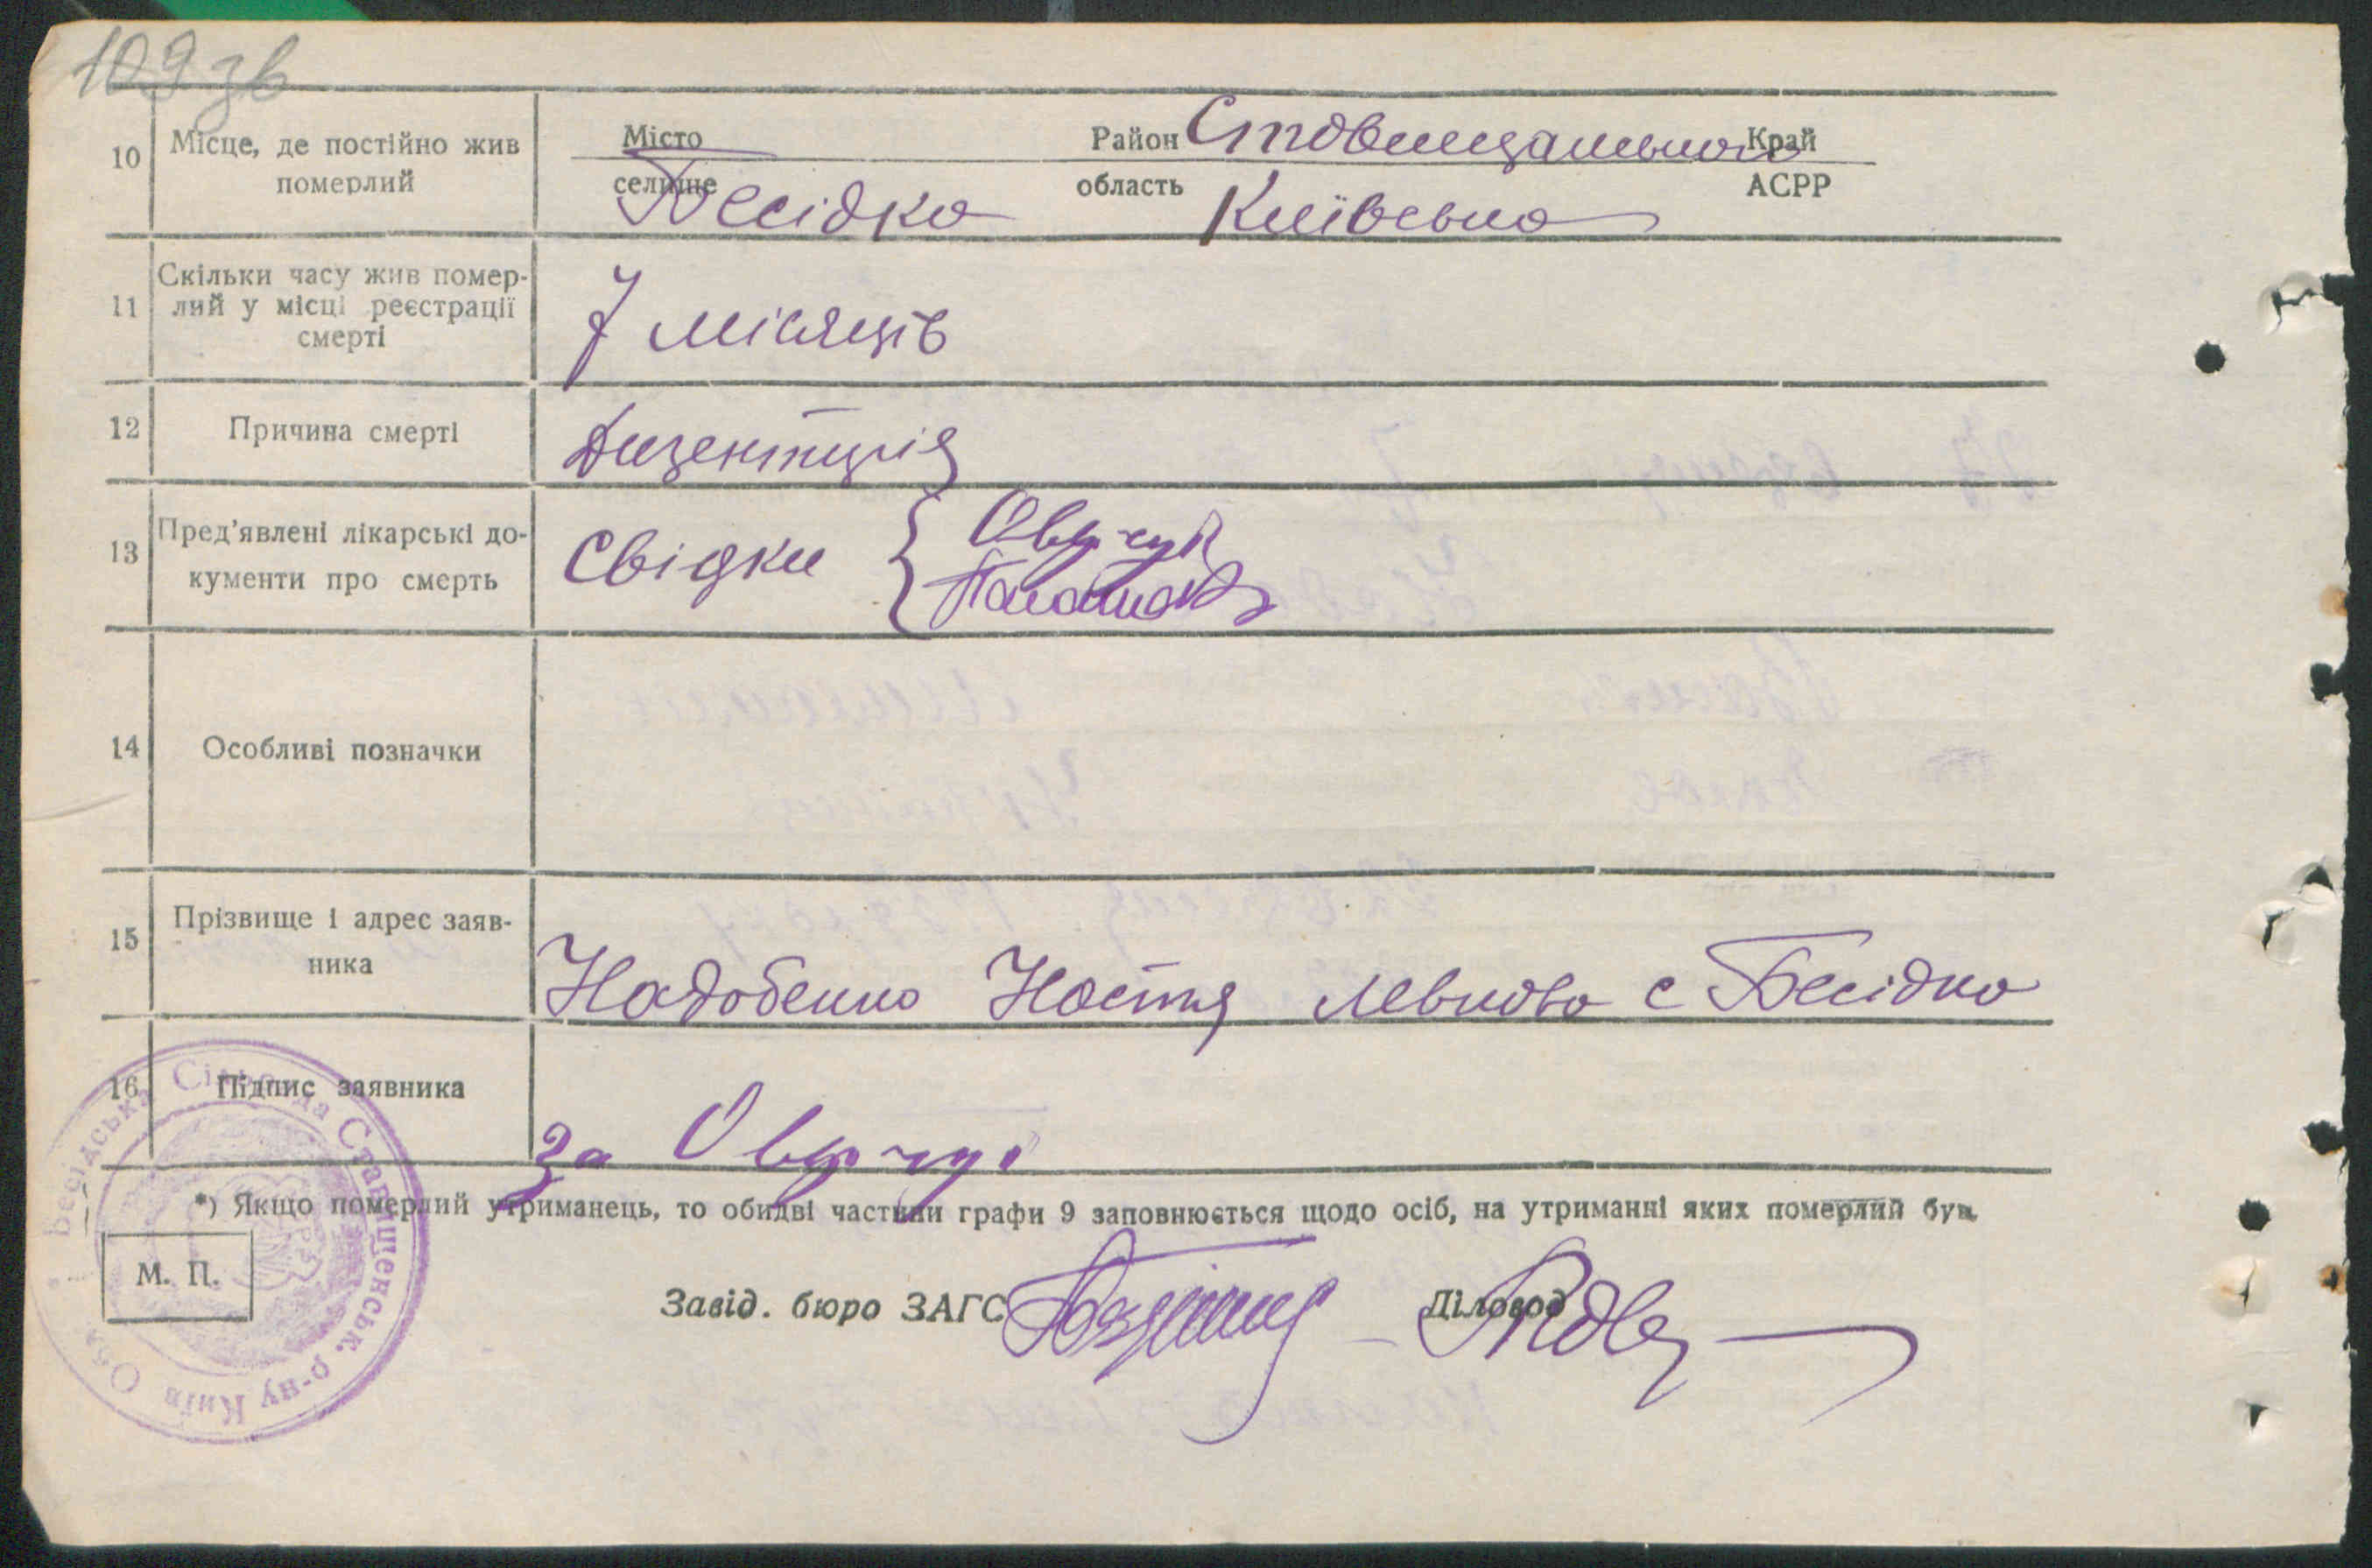 109 зв
10 Місце, де постійно жив померлий
Місто Район Ставищанського Край
селище Бесідка область Київська АСРР
11 Скільки часу жив помер-
лий у місці реєстрації
смерті
7 місяців
12 Причина смерті Дизентерія
13 Пред'явлені лікарські до-
кументи про смерть
Свідки {
14 Особливі позначки
15 Прізвище і адрес заяв-
ника
Надобенко Настя Левкова с Бесідка
16 Підпис заявника
за
*) Якщо померлий утриманець, то обидві частини графи 9 заповнюється щодо осіб, на утриманні яких померлий був.
М. П.
Завід. бюро ЗАГС Діловод
Бесідська Сільрада Ставищенськ. р-ну Київ Обл